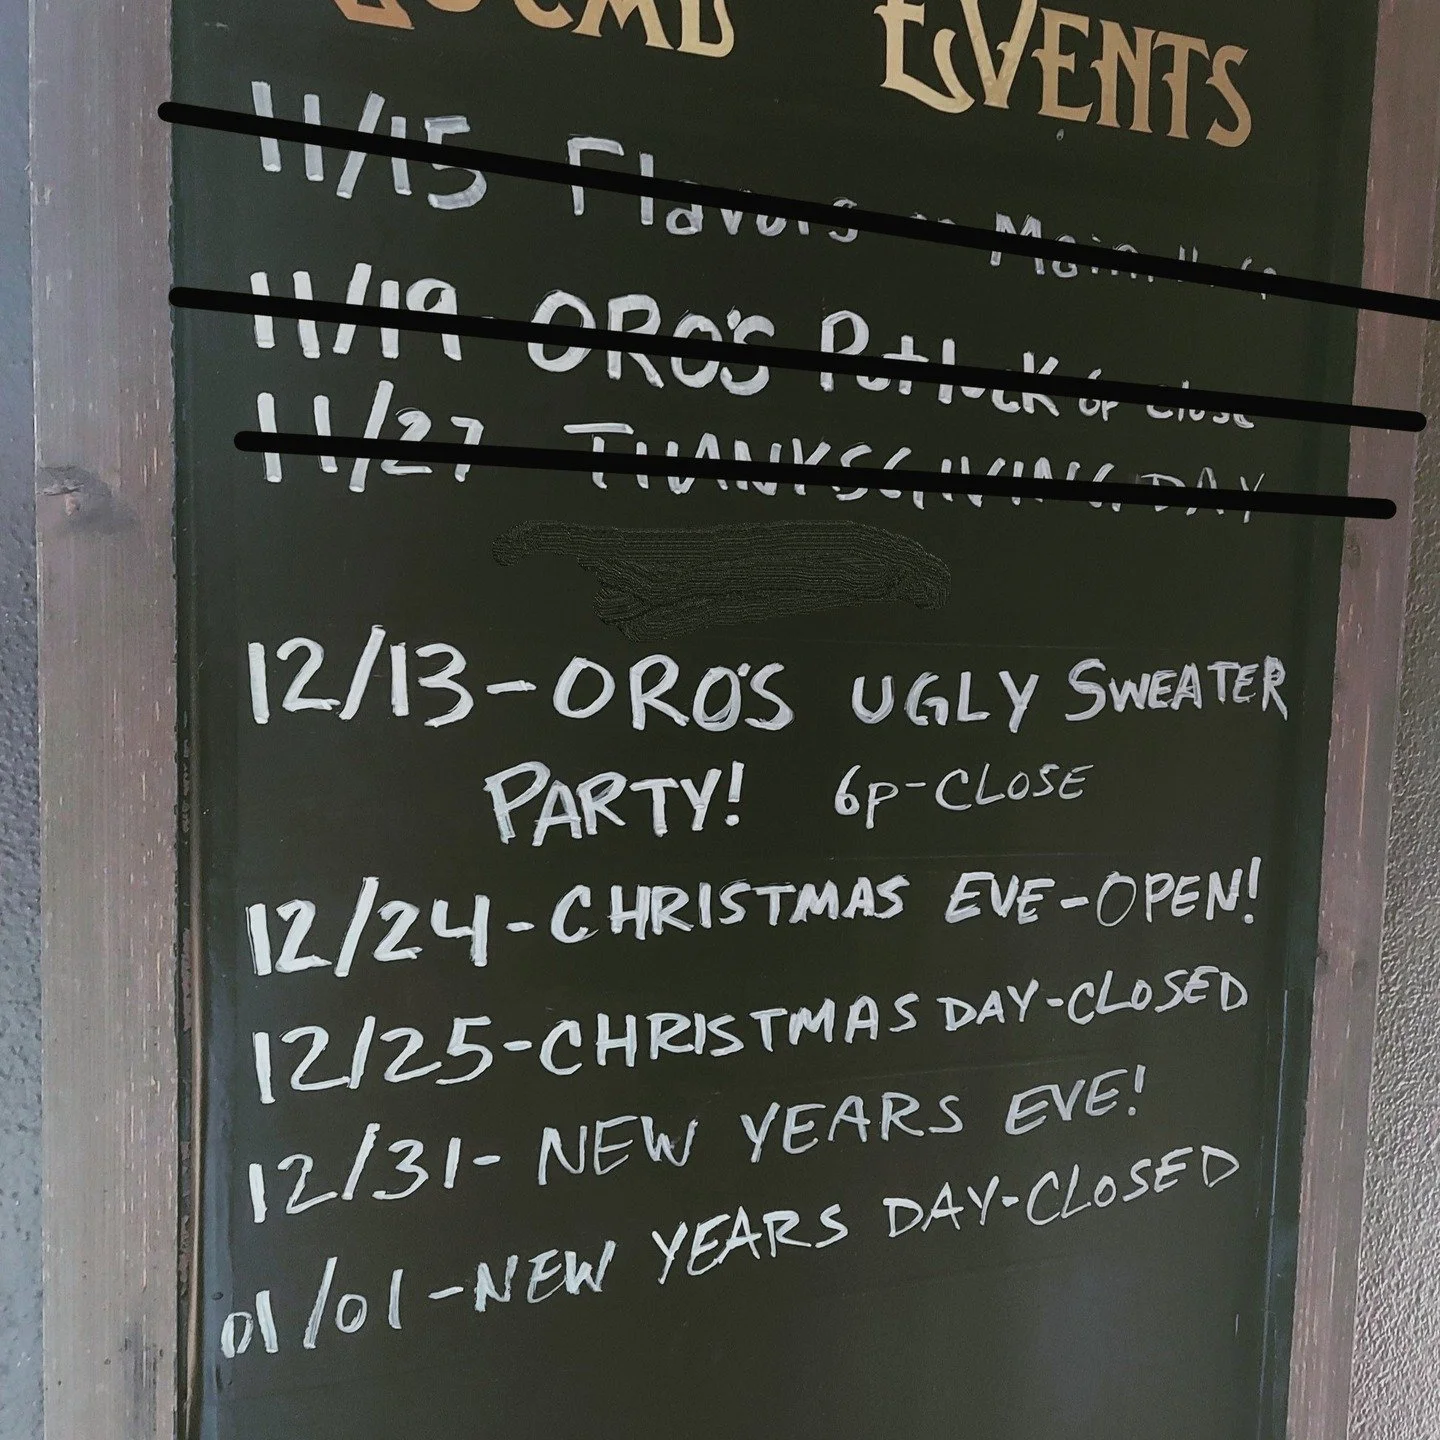 EVENTS
11/15 Flavors on Main
11/19 - ORO'S Potluck 6p close
11/27 THANKSGIVING DAY
12/13 - ORO'S UGLY SWEATER
PARTY! 6p-CLOSE
12/24 - CHRISTMAS EVE - OPEN!
12/25 - CHRISTMAS DAY - CLOSED
12/31 - NEW YEARS EVE!
01/01 - NEW YEARS DAY - CLOSED